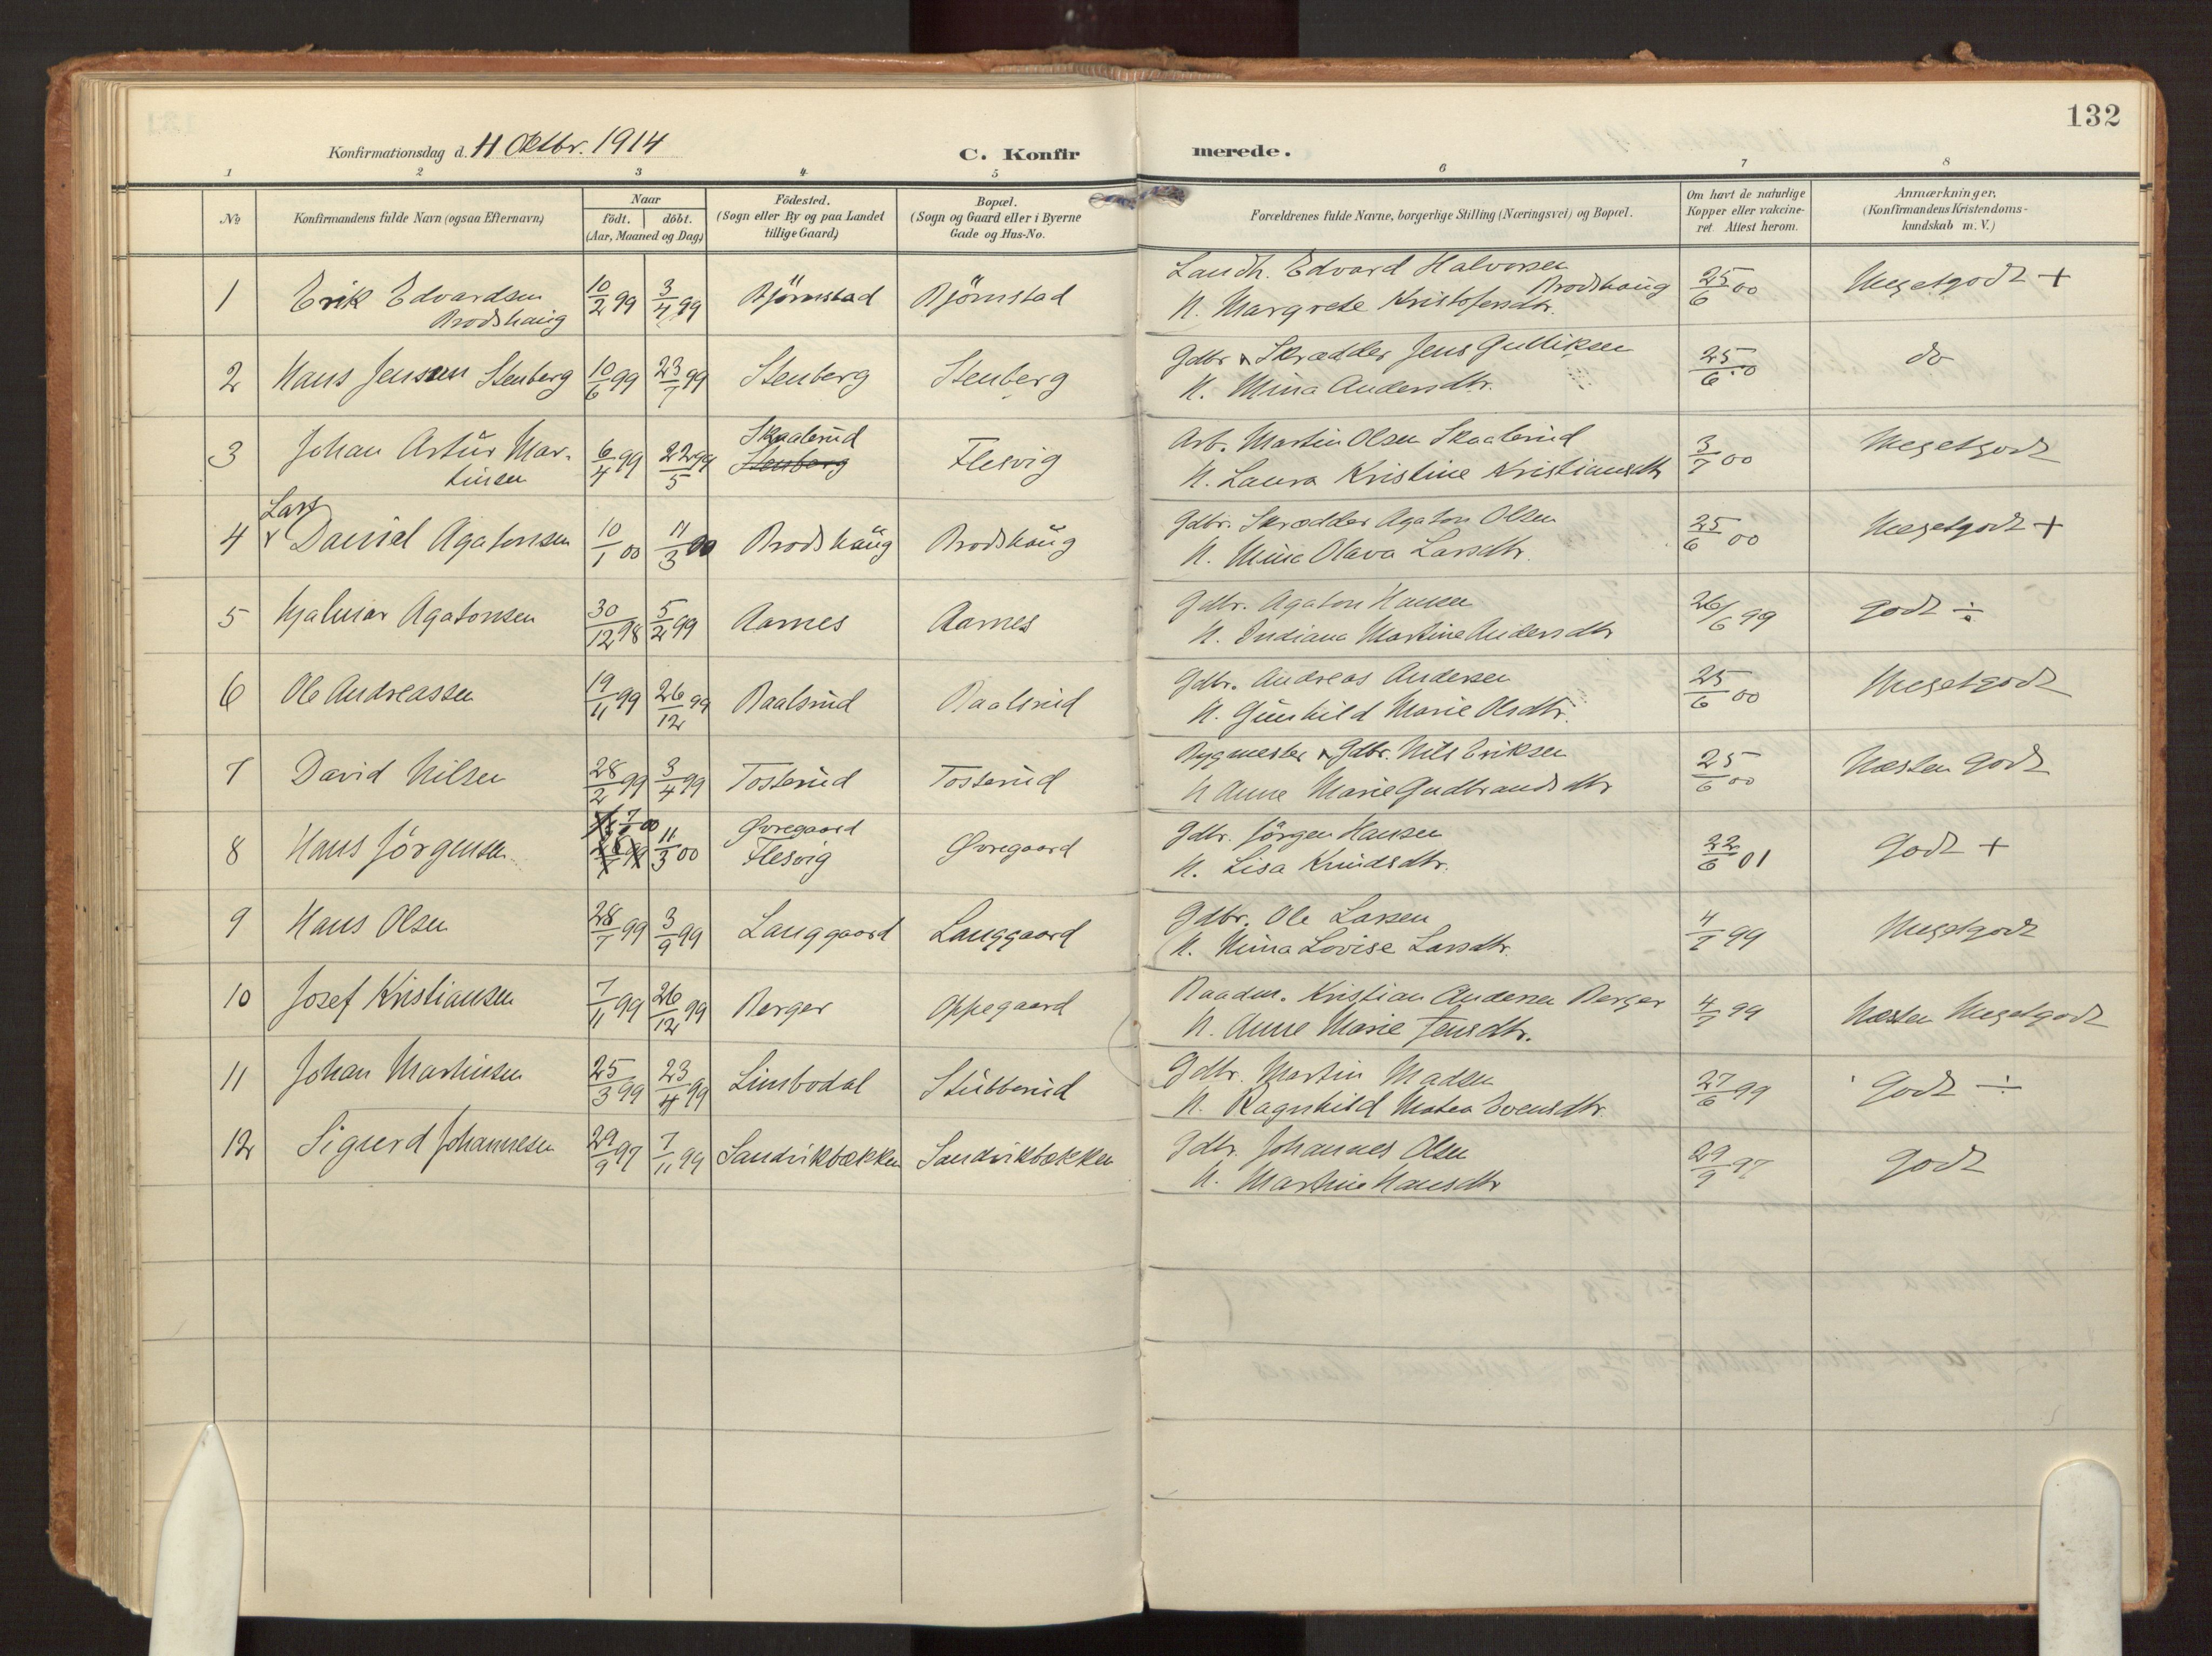 132
Konfirmationsdag d. 11 Oktbr. 1914
C. Konfirmerede.
1 2 3 4 5 6 7 8
No
Konfirmandens fulde Navn (ogsaa Efternavn)
Naar
født. døbt.
(Aar, Maaned og Dag)
Födested.
(Sogn eller By og paa Landet
tillige Gaard)
Bopæl.
(Sogn og Gaard eller i Byerne
Gade og Hus-No.
Forældrenes fulde Navne, borgerlige Stilling (Næringsvei) og Bopæl.
Om havt de naturlige
Kopper eller vakcine-
ret. Attest herom.
Anmærkninger.
(Konfirmandens Kristendoms-
kundskab m. V.)
1 Erik Edvardsen Brodshaug 10/2 99 3/4 99 Bjørnstad Bjørnstad Edvard Halvorsen Brodshaug 25/6 00 Megetgodt +
H. Margrete Kristofersdtr.
2 Hans Jensen Stenberg 10/6 99 23/7 99 Stenberg Stenberg Gdbr & Skrædder Jens Gulliksen 25/6 00 do
H. Mina Andersdtr.
3 Johan Artur Martinsen 6/4 99 22/5 99 Skaalerud Stenberg Flesvig Arb. Martin Olsen Skaalerud 3/7 00 Megetgodt
H. Laura Kristine Kristiansdtr
4 Lars Daniel Agatonsen 10/1 00 11/3 00 Brodshaug Brodshaug Gdbr. Skrædder Agaton Olsen 25/6 00 Megetgodt +
H. Mina Olava Larsdtr.
5 Hjalmar Agatonsen 30/12 98 5/2 99 Aarnes Aarnes Gdbr. Agaton Hansen 26/6 99 godt ÷
H. Indiana Martine Andersdtr
6 Ole Andreassen 19/11 99 26/12 99 Raalsrud Raalsrud Gdbr. Andreas Andersen 25/6 00 Megetgodt
H. Gunhild Marie Olsdtr.
7 David Nilsen 28/2 99 3/4 99 Tosterud Tosterud Bygmester & Gdbr. Nils Eriksen 25/6 00 Næsten godt
H Anne Marie Gudbrandsdtr
8 Hans Jörgensen 11/3 00 Øvregaard Flesvig Øvregaard Gdbr. Jörgen Hansen 22/6 01 Godt +
H. Lisa Knudsdtr.
9 Hans Olsen 28/7 99 3/9 99 Langgaard Langgaard Gdbr. Ole Larsen 4/7 99 Megetgodt
H. Mina Lovise Larsdtr.
10 Josef Kristiansen 7/11 99 26/12 99 Berger Oppegaard Baadm. Kristian Andersen Berger 4/7 99 Næsten Megetgodt
H. Anne Marie Jensdtr.
11 Johan Martinsen 25/3 99 23/4 99 Limbodal Stubberud Gdbr. Martin Madsen 27/6 99 Godt ÷
H. Ragnhild Matea Svensdtr.
12 Sigurd Johannesen 29/9 97 7/11 99 Sandvikbækken Sandvikbækken Gdbr. Johannes Olsen 29/9 97 godt
H. Martine Hansdtr